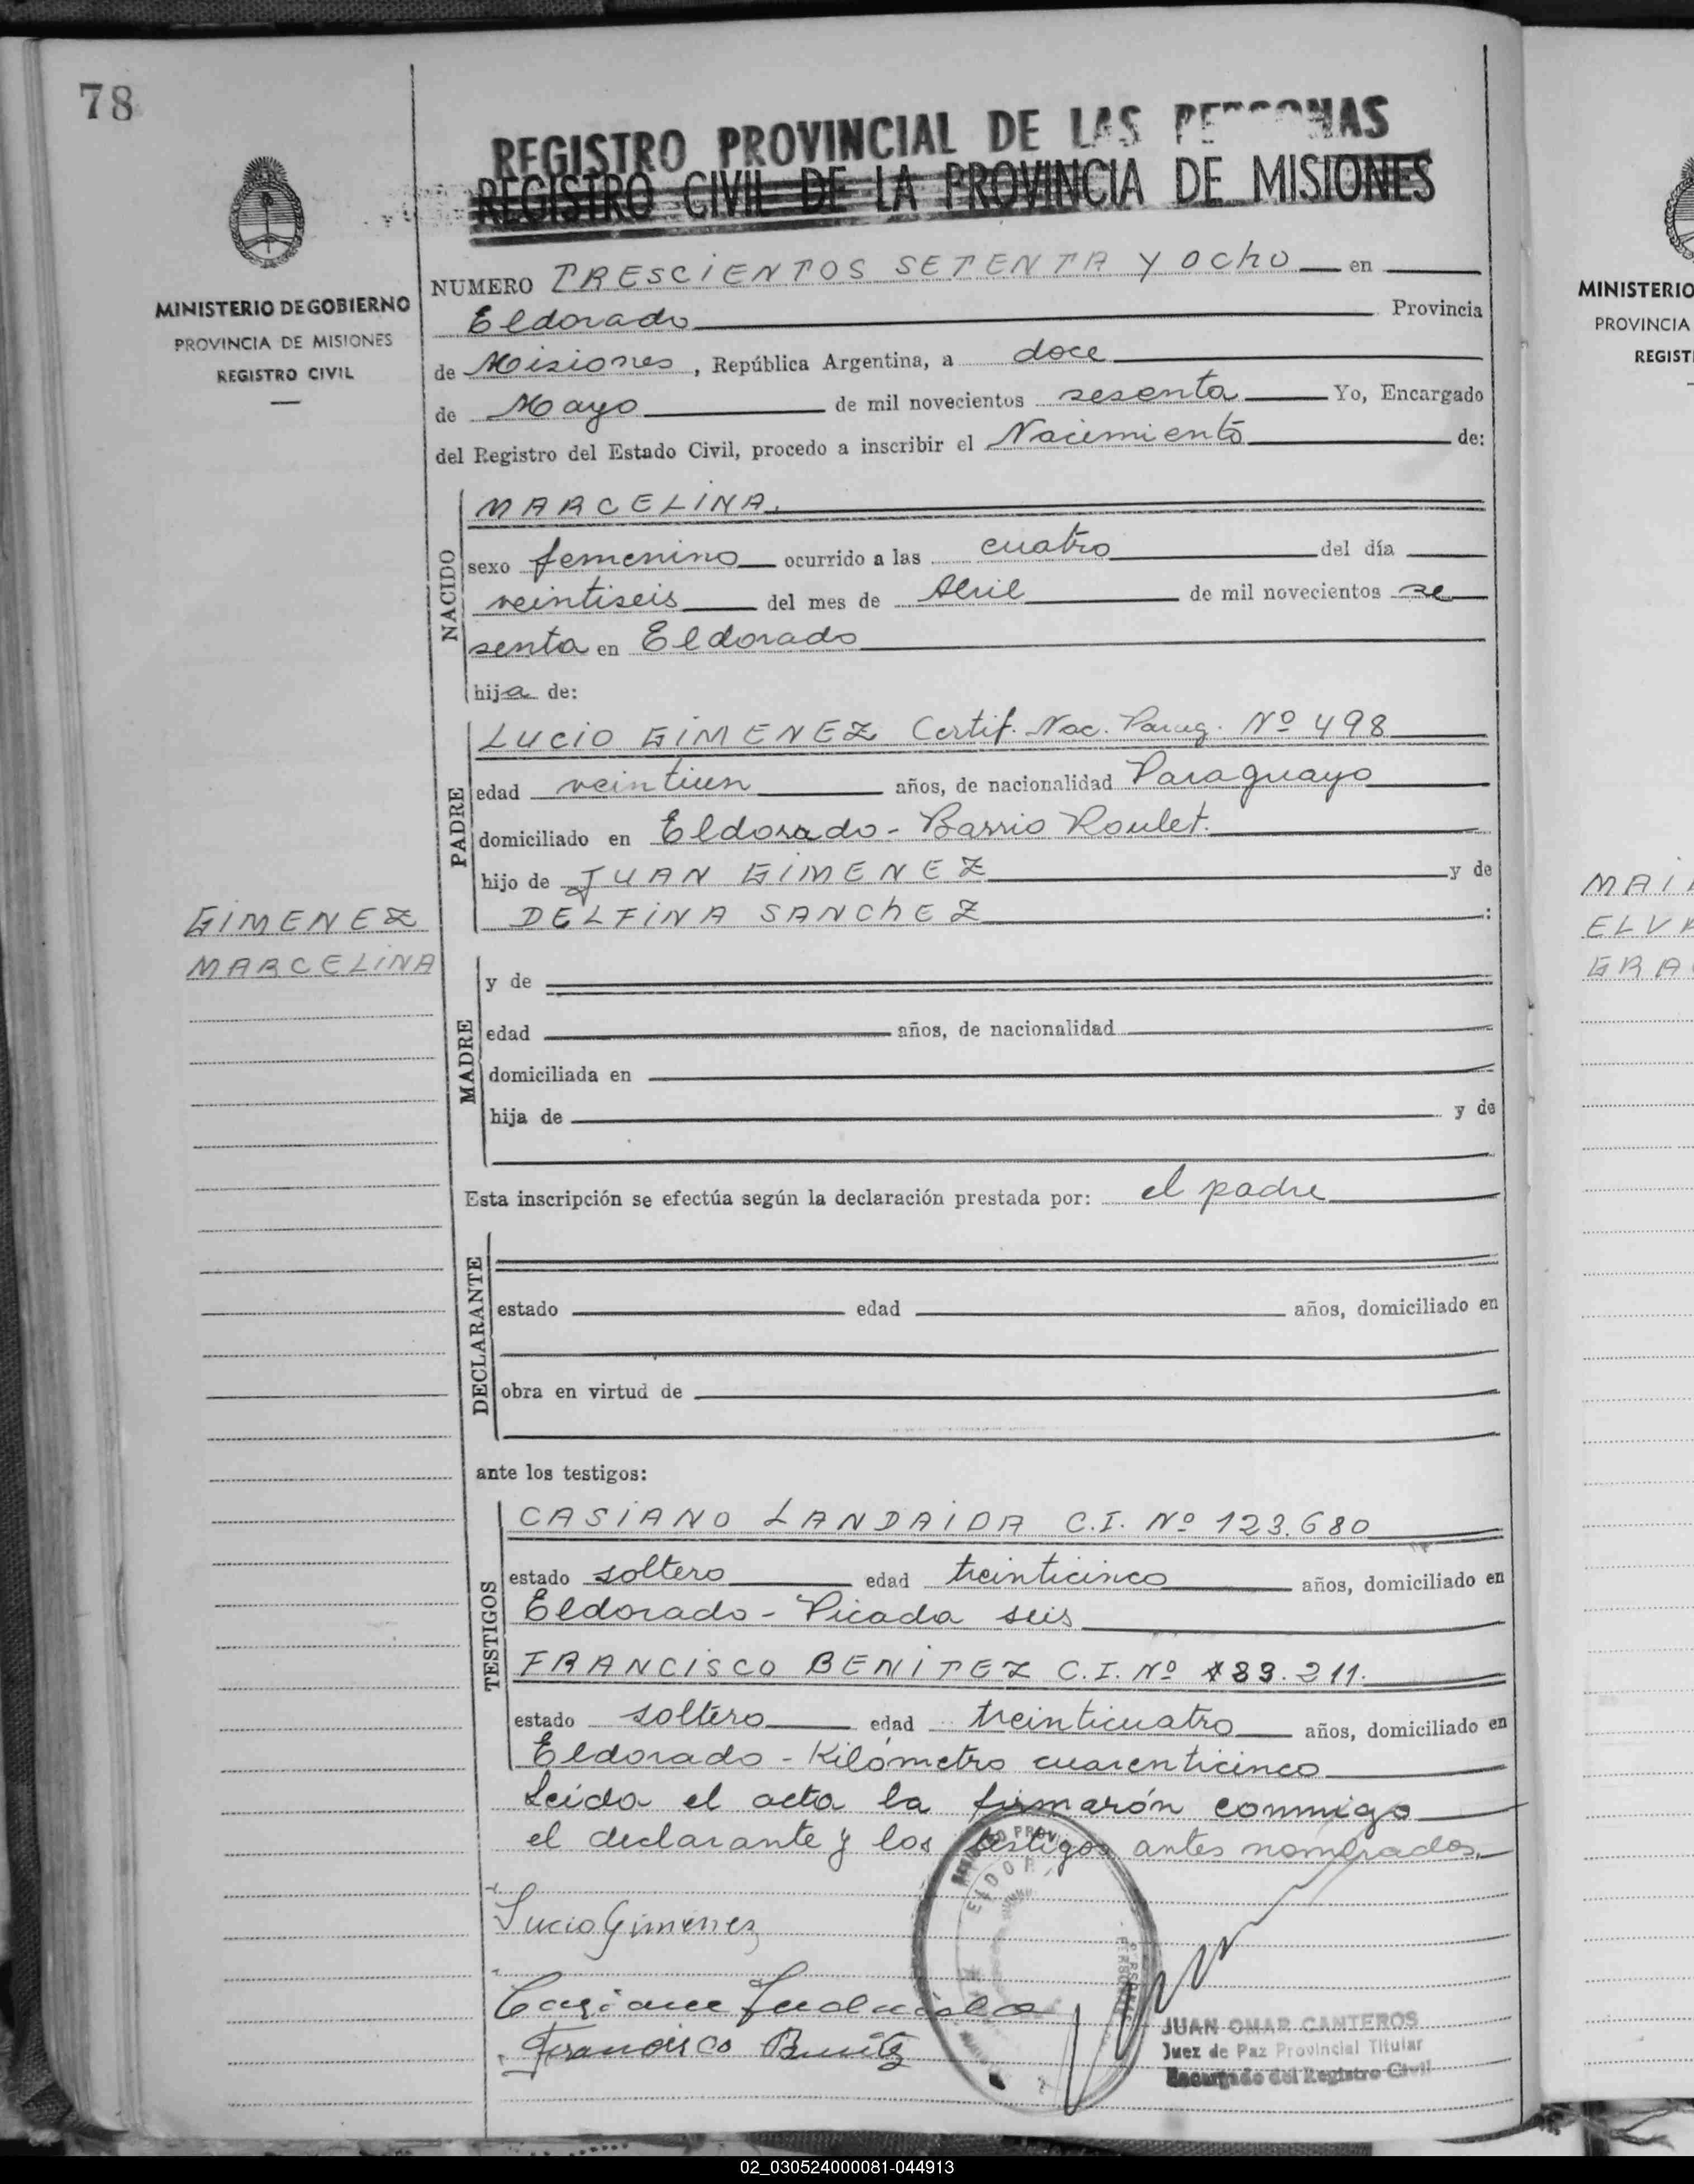 78
REGISTRO PROVINCIAL DE LAS PERSONAS
REGISTRO CIVIL DE LA PROVINCIA DE MISIONES
MINISTERIO DE GOBIERNO
PROVINCIA DE MISIONES
REGISTRO CIVIL
NUMERO TRESCIENTOS SETENTA Y OCHO en
Eldorado Provincia
de Misiones, República Argentina, a doce
de Mayo de mil novecientos sesenta Yo, Encargado
del Registro del Estado Civil, procedo a inscribir el Nacimiento de:
NACIDO
MARCELINA.
sexo femenino ocurrido a las cuatro del día
veintiseis del mes de Abril de mil novecientos se
senta en Eldorado
hija de:
PADRE
LUCIO GIMENEZ Certif. Nac. Parag. Nº 498
edad veintiun años, de nacionalidad Paraguayo
domiciliado en Eldorado - Barrio Roulet.
hijo de JUAN GIMENEZ y de
DELFINA SANCHEZ :
GIMENEZ
MARCELINA
MADRE
y de
edad años, de nacionalidad
domiciliada en
hija de y de
Esta inscripción se efectúa según la declaración prestada por: el padre
DECLARANTE
estado edad años, domiciliado en
obra en virtud de
ante los testigos:
TESTIGOS
CASIANO LANDAIDA C.I. Nº 123.680
estado soltero edad treinticinco años, domiciliado en
Eldorado - Picada seis
FRANCISCO BENITEZ C.I. Nº 183.211.
estado soltero edad treinticuatro años, domiciliado en
Eldorado - Kilómetro cuarenticinco
Leida el acta la firmarón conmigo
el declarante y los testigos antes nombrados.
Lucio Gimenez
Francisco Benitez
JUAN OMAR CANTEROS
Juez de Paz Provincial Titular
Encargado del Registro Civil
MINISTERIO
PROVINCIA
REGIST
MAI
ELV
GRA
02_030524000081-044913